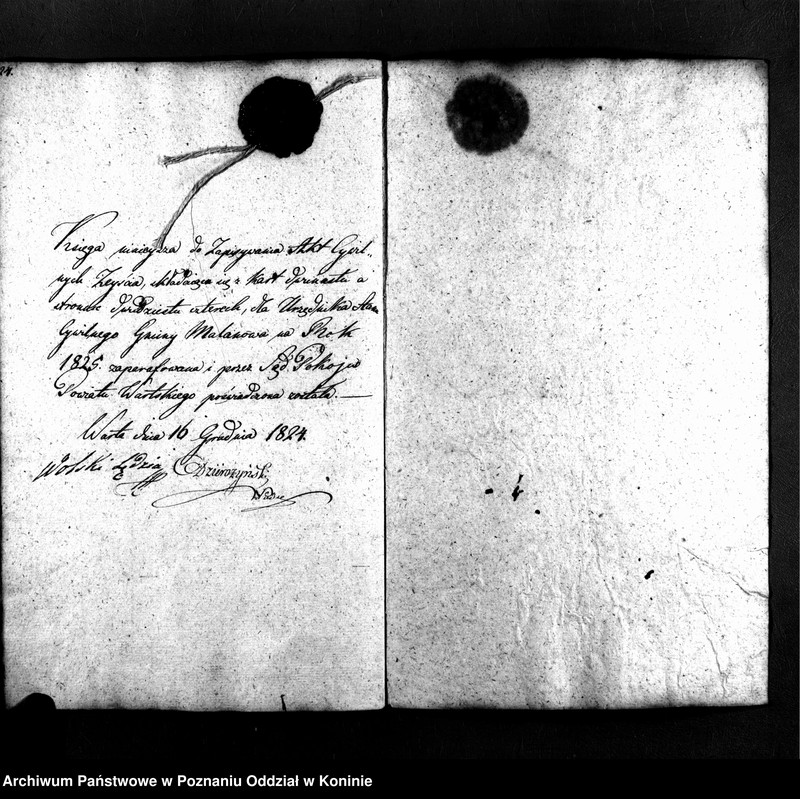 24.
Księga ninieysza do Zapisywania Akt Cywil-
nych Zeyścia, składaiąca się z kart dwunastu a
stronnic dwudziestu czterech, dla Urzędnika Stanu
Cywilnego Gminy Malanowa na Rok
1825. zaparafowana i przez Sąd Pokoju
Powiatu Wartskiego poświadczona została. —
Warta dnia 16 Grudnia 1824.
Wolski Sędzia Dzierożyński
Archiwum Państwowe w Poznaniu Oddział w Koninie